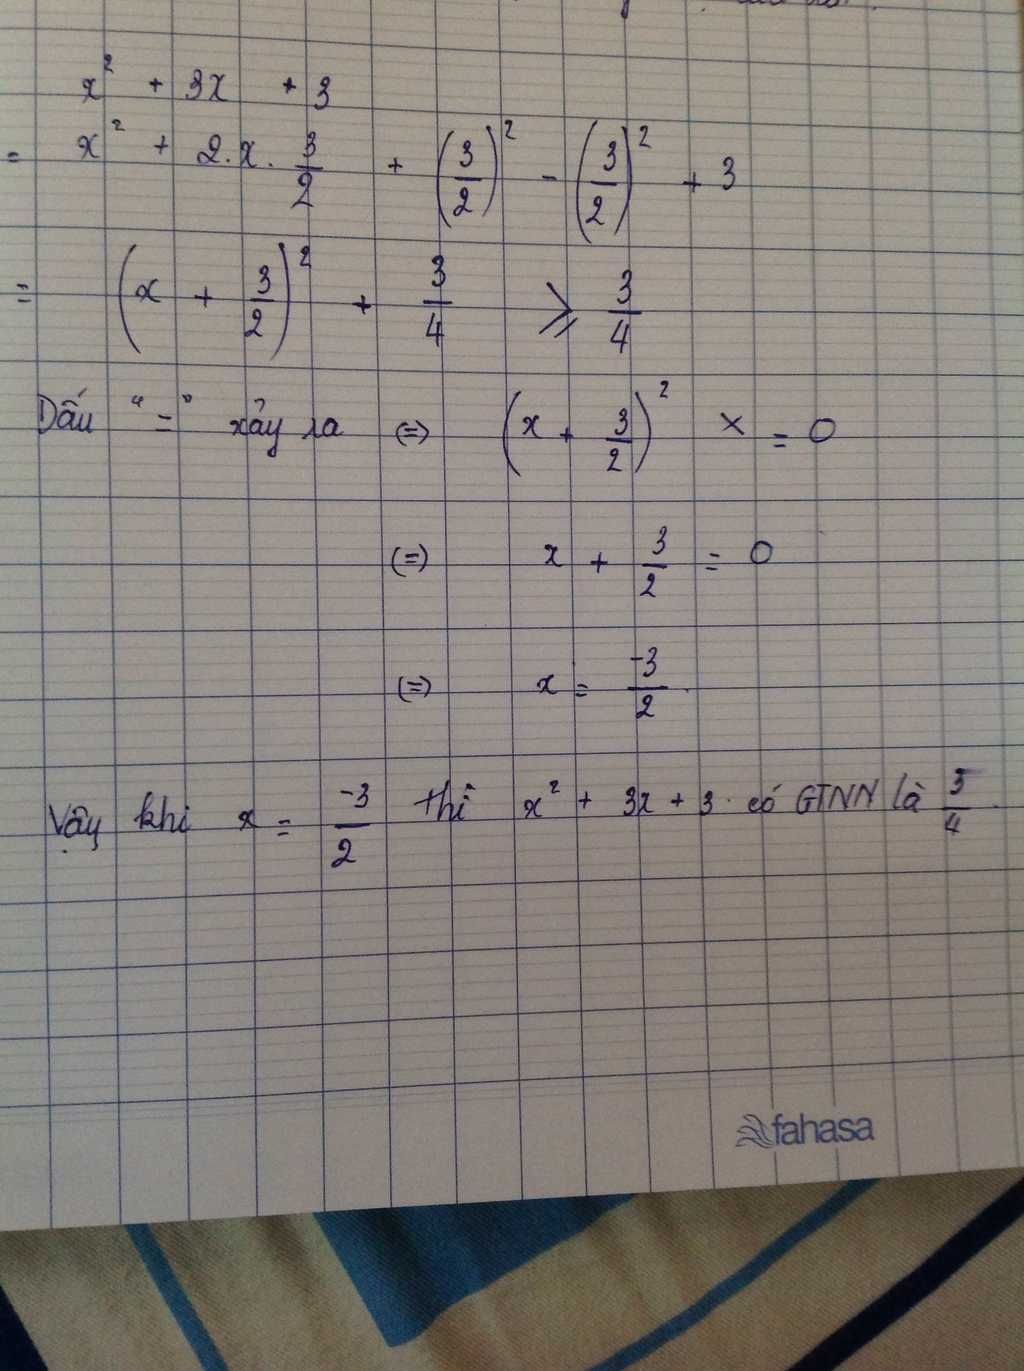 x² + 3x + 3
= x² + 2.x. 3/2 + (3/2)² - (3/2)² + 3
= (x + 3/2)² + 3/4 ⩾ 3/4
Dấu "=" xảy ra (=) (x + 3/2)² x = 0
(=) x + 3/2 = 0
(=) x = -3/2.
Vậy khi x = -3/2 thì x² + 3x + 3 có GTNN là 3/4.
fahasa